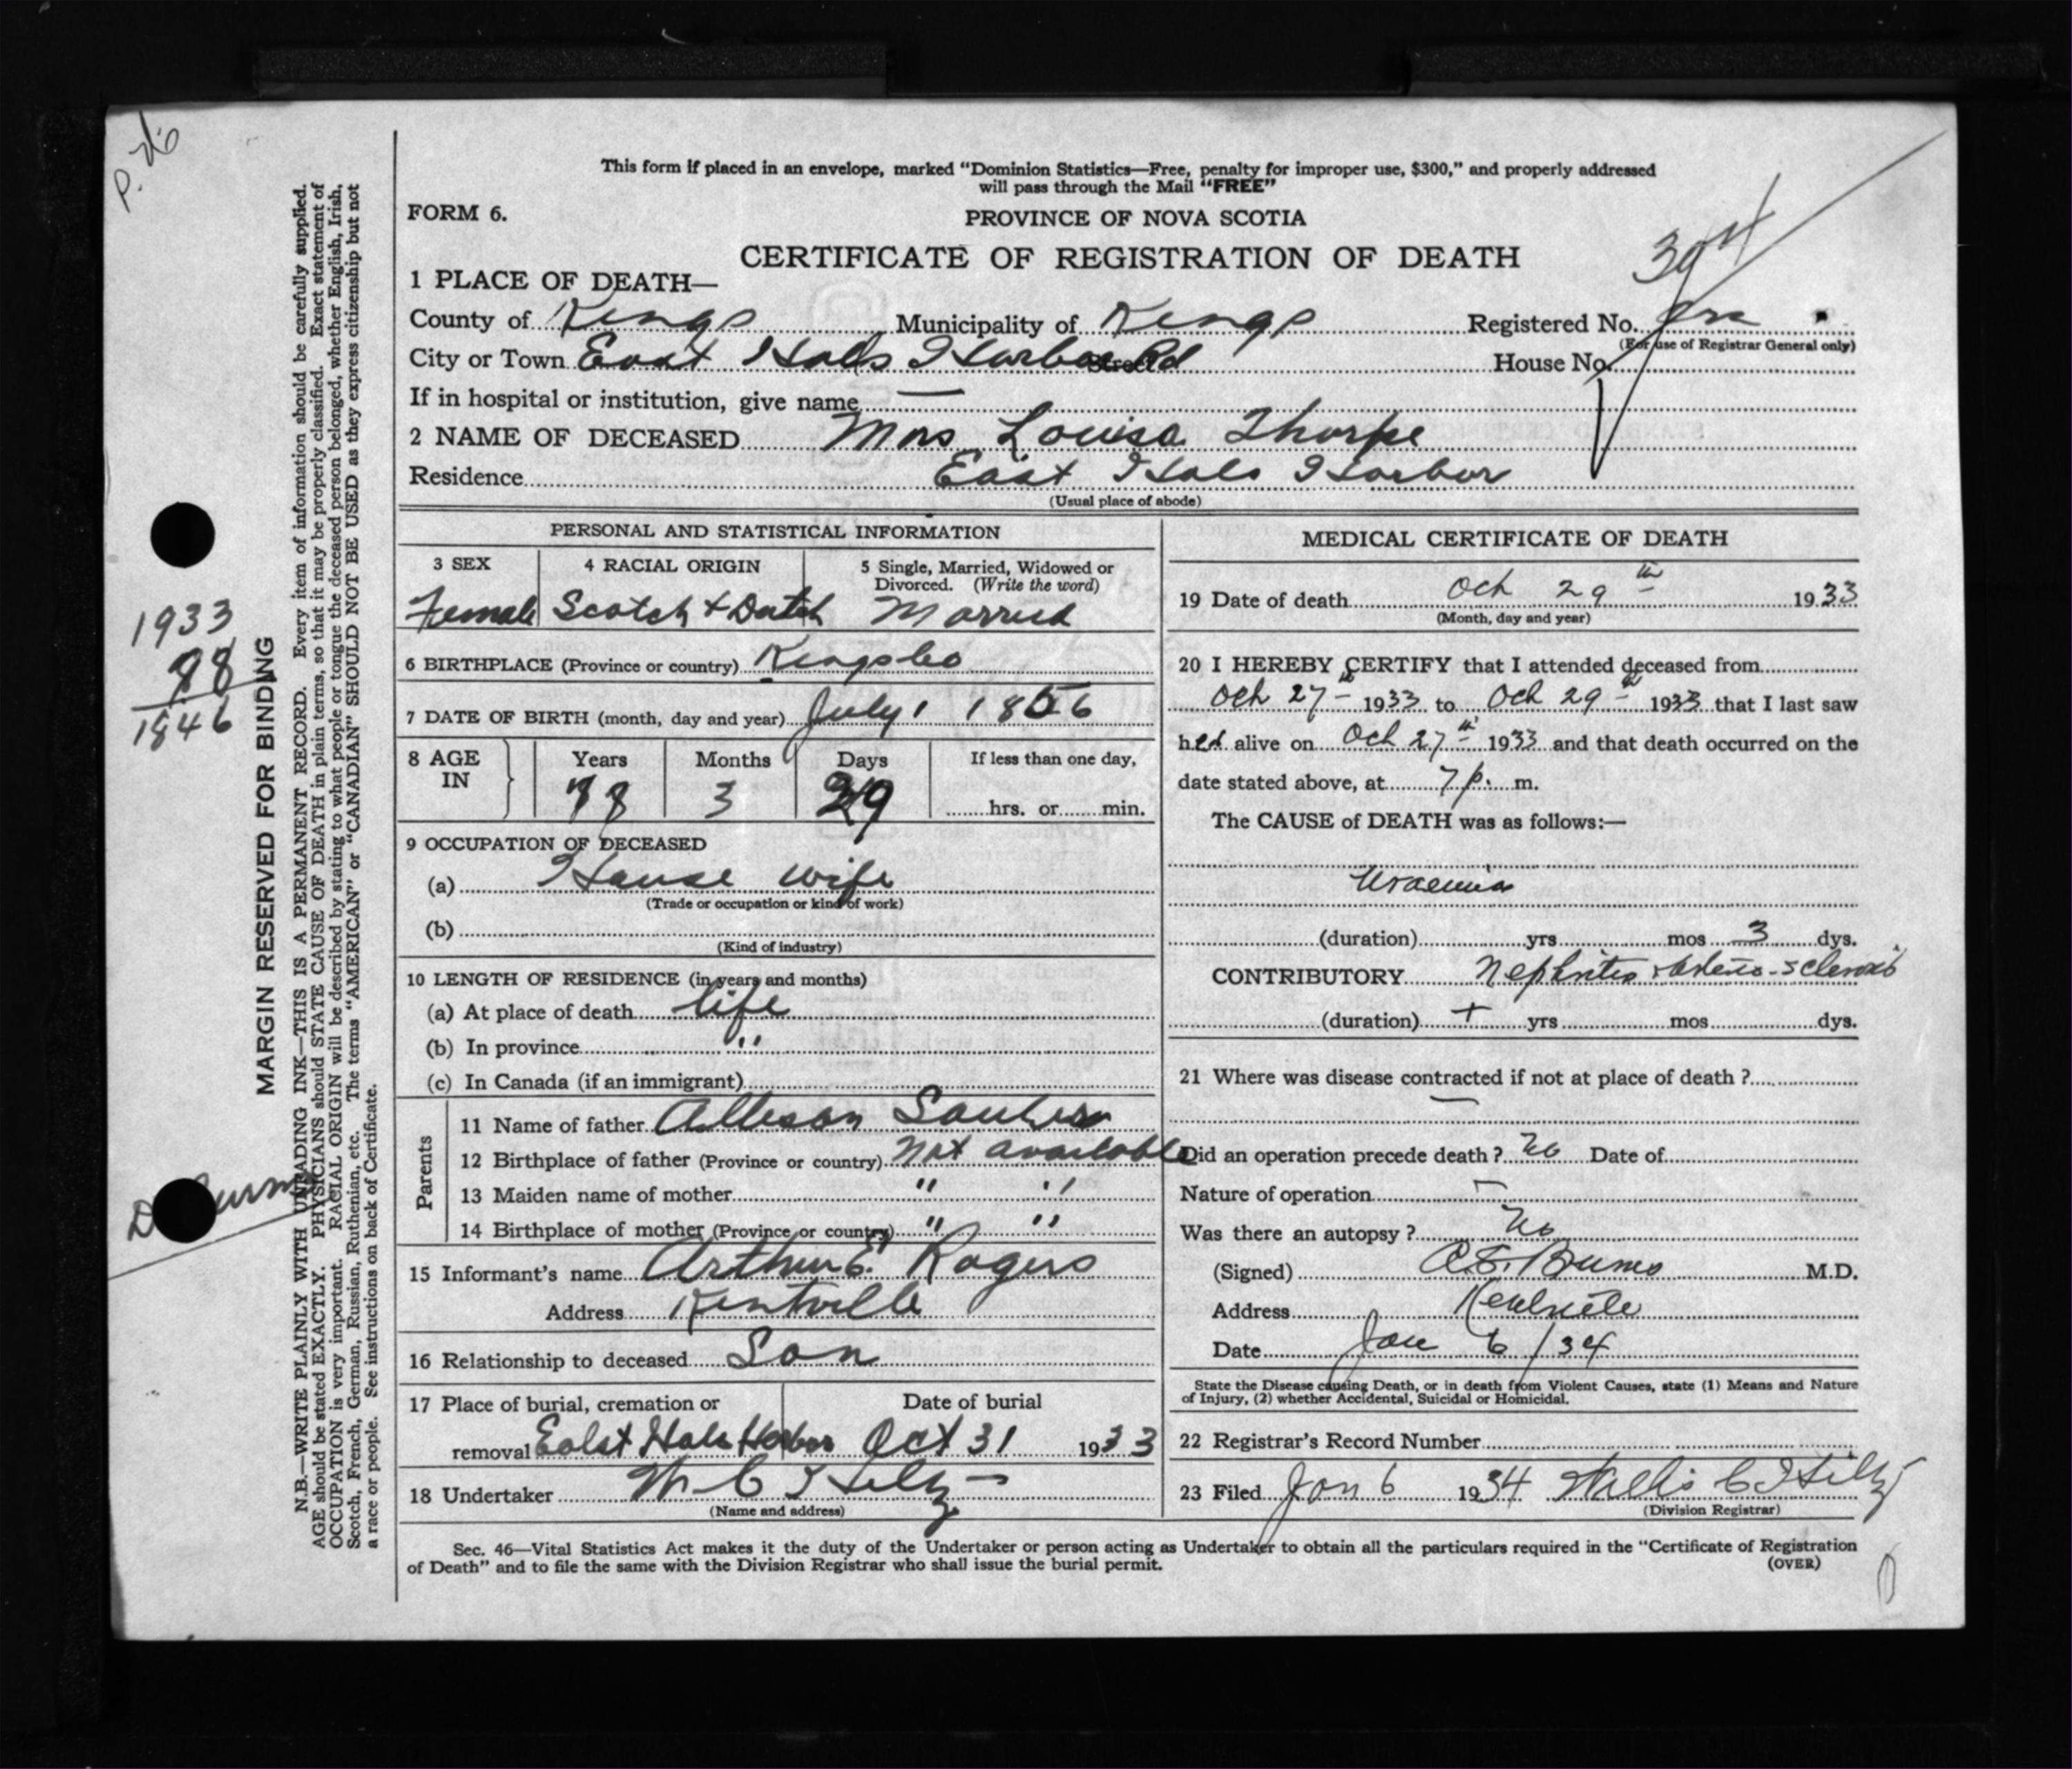 P. 26
This form if placed in an envelope, marked "Dominion Statistics—Free, penalty for improper use, $300," and properly addressed
will pass through the Mail "FREE"
FORM 6.
PROVINCE OF NOVA SCOTIA
CERTIFICATE OF REGISTRATION OF DEATH
1 PLACE OF DEATH—
County of Kings Municipality of Kings Registered No.
(For use of Registrar General only)
City or Town East Hals Harbor Rd Street House No.
If in hospital or institution, give name —
2 NAME OF DECEASED Mrs Louisa Thorpe
Residence East Hals Harbor
(Usual place of abode)
PERSONAL AND STATISTICAL INFORMATION
3 SEX 4 RACIAL ORIGIN 5 Single, Married, Widowed or
Divorced. (Write the word)
Female Scotch + Dutch Married
6 BIRTHPLACE (Province or country) Kings Co
7 DATE OF BIRTH (month, day and year) July 1 1856
8 AGE IN Years Months Days If less than one day,
3 29 hrs. or min.
9 OCCUPATION OF DECEASED
(a) House wife
(Trade or occupation or kind of work)
(b)
(Kind of industry)
10 LENGTH OF RESIDENCE (in years and months)
(a) At place of death life
(b) In province "
(c) In Canada (if an immigrant)
Parents
11 Name of father Alleson
12 Birthplace of father (Province or country) Not available
13 Maiden name of mother " "
14 Birthplace of mother (Province or country) " "
15 Informant's name Arthur E. Rogers
Address Kentville
16 Relationship to deceased Son
17 Place of burial, cremation or Date of burial
removal East Hals Harbor Oct 31 1933
18 Undertaker W C Hilz
(Name and address)
MEDICAL CERTIFICATE OF DEATH
19 Date of death Oct 29th 1933
(Month, day and year)
20 I HEREBY CERTIFY that I attended deceased from
Oct 27th 1933 to Oct 29th 1933 that I last saw
her alive on Oct 27th 1933 and that death occurred on the
date stated above, at 7 p. m.
The CAUSE of DEATH was as follows:—
Uraemia
(duration) yrs mos 3 dys.
CONTRIBUTORY Nephritis + Arterio-sclerosis
(duration) + yrs mos dys.
21 Where was disease contracted if not at place of death ?
—
Did an operation precede death ? No Date of
Nature of operation —
Was there an autopsy ? No
(Signed) Burns M.D.
Address Kentville
Date Jan 6/34
State the Disease causing Death, or in death from Violent Causes, state (1) Means and Nature
of Injury, (2) whether Accidental, Suicidal or Homicidal.
22 Registrar's Record Number
23 Filed Jan 6 1934 Willis C Hilz
(Division Registrar)
Sec. 46—Vital Statistics Act makes it the duty of the Undertaker or person acting as Undertaker to obtain all the particulars required in the "Certificate of Registration
of Death" and to file the same with the Division Registrar who shall issue the burial permit.
(OVER)
1933
1846
MARGIN RESERVED FOR BINDING
N.B.—WRITE PLAINLY WITH UNFADING INK—THIS IS A PERMANENT RECORD. Every item of information should be carefully supplied.
AGE should be stated EXACTLY. PHYSICIANS should STATE CAUSE OF DEATH in plain terms, so that it may be properly classified. Exact statement of
OCCUPATION is very important. RACIAL ORIGIN will be described by stating to what people or tongue the deceased person belonged, whether English, Irish,
Scotch, French, German, Russian, Ruthenian, etc. The terms "AMERICAN" or "CANADIAN" SHOULD NOT BE USED as they express citizenship but not
a race or people. See instructions on back of Certificate.